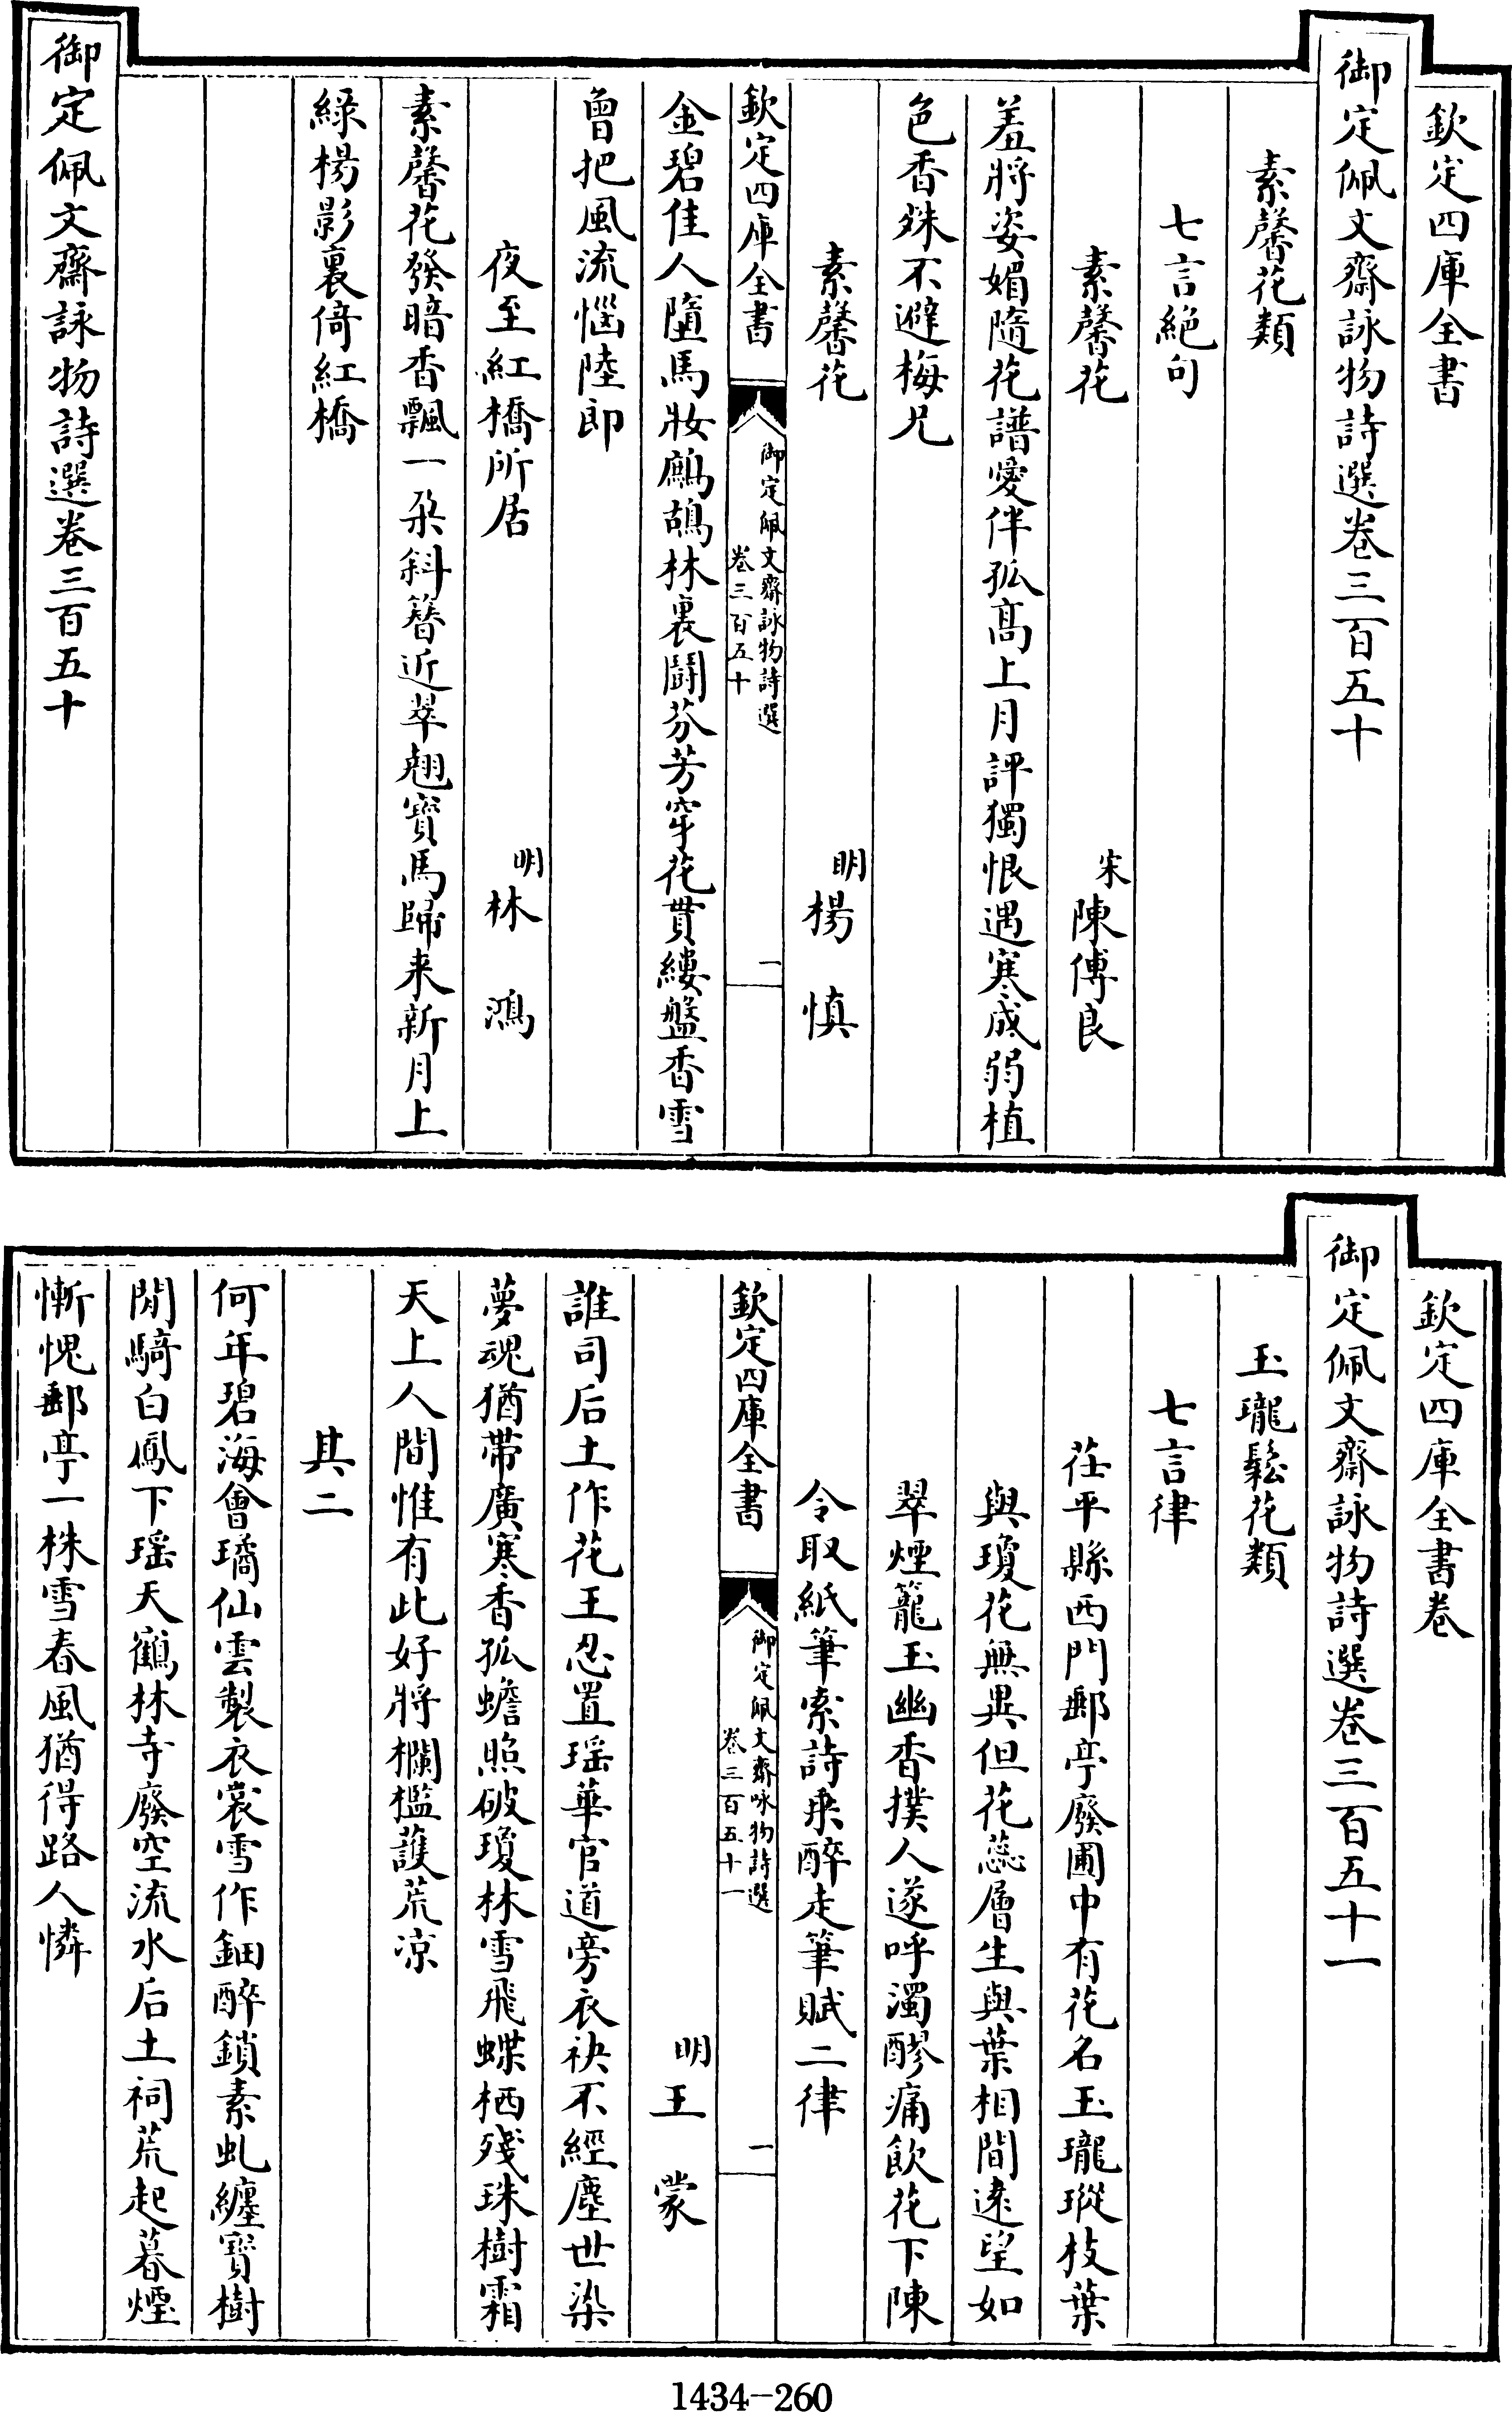 欽定四庫全書
御定佩文齋詠物詩選卷三百五十
素馨花類
七言絶句
素馨花
宋陳傅良
羞將姿媚隨花譜愛伴孤髙上月評獨恨遇寒成弱植
色香殊不避梅兄
素馨花
明楊慎
欽定四庫全書
御定佩文齋詠物詩選
卷三百五十
一
金碧佳人墮馬妝鷓鴣林裏鬪芬芳穿花貫縷盤香雪
曾把風流惱陸郎
夜至紅橋所居
明林鴻
素馨花發暗香飄一朶斜簮近翠翹寳馬歸來新月上
緑楊影裏倚紅橋
御定佩文齋詠物詩選卷三百五十
欽定四庫全書卷
御定佩文齋詠物詩選卷三百五十一
玉瓏鬆花類
七言律
茌平縣西門郵亭廢圃中有花名玉瓏瑽枝葉
與瓊花無異但花蕊層生與葉相間逺望如
翠煙籠玉幽香撲人遂呼濁醪痛飲花下陳
令取紙筆索詩乗醉走筆賦二律
欽定四庫全書
御定佩文齋咏物詩選
卷三百五十一
一
明王蒙
誰司后土作花王忍置瑶華官道旁衣袂不經塵世染
夢魂猶帶廣寒香孤蟾照破瓊林雪飛蝶栖殘珠樹霜
天上人間惟有此好將欄檻護荒凉
其二
何年碧海會璚仙雲製衣裳雪作鈿醉鎖素虬纏寳樹
閒騎白鳳下瑶天鶴林寺廢空流水后土祠荒起暮煙
慚愧郵亭一株雪春風猶得路人憐
1434-260